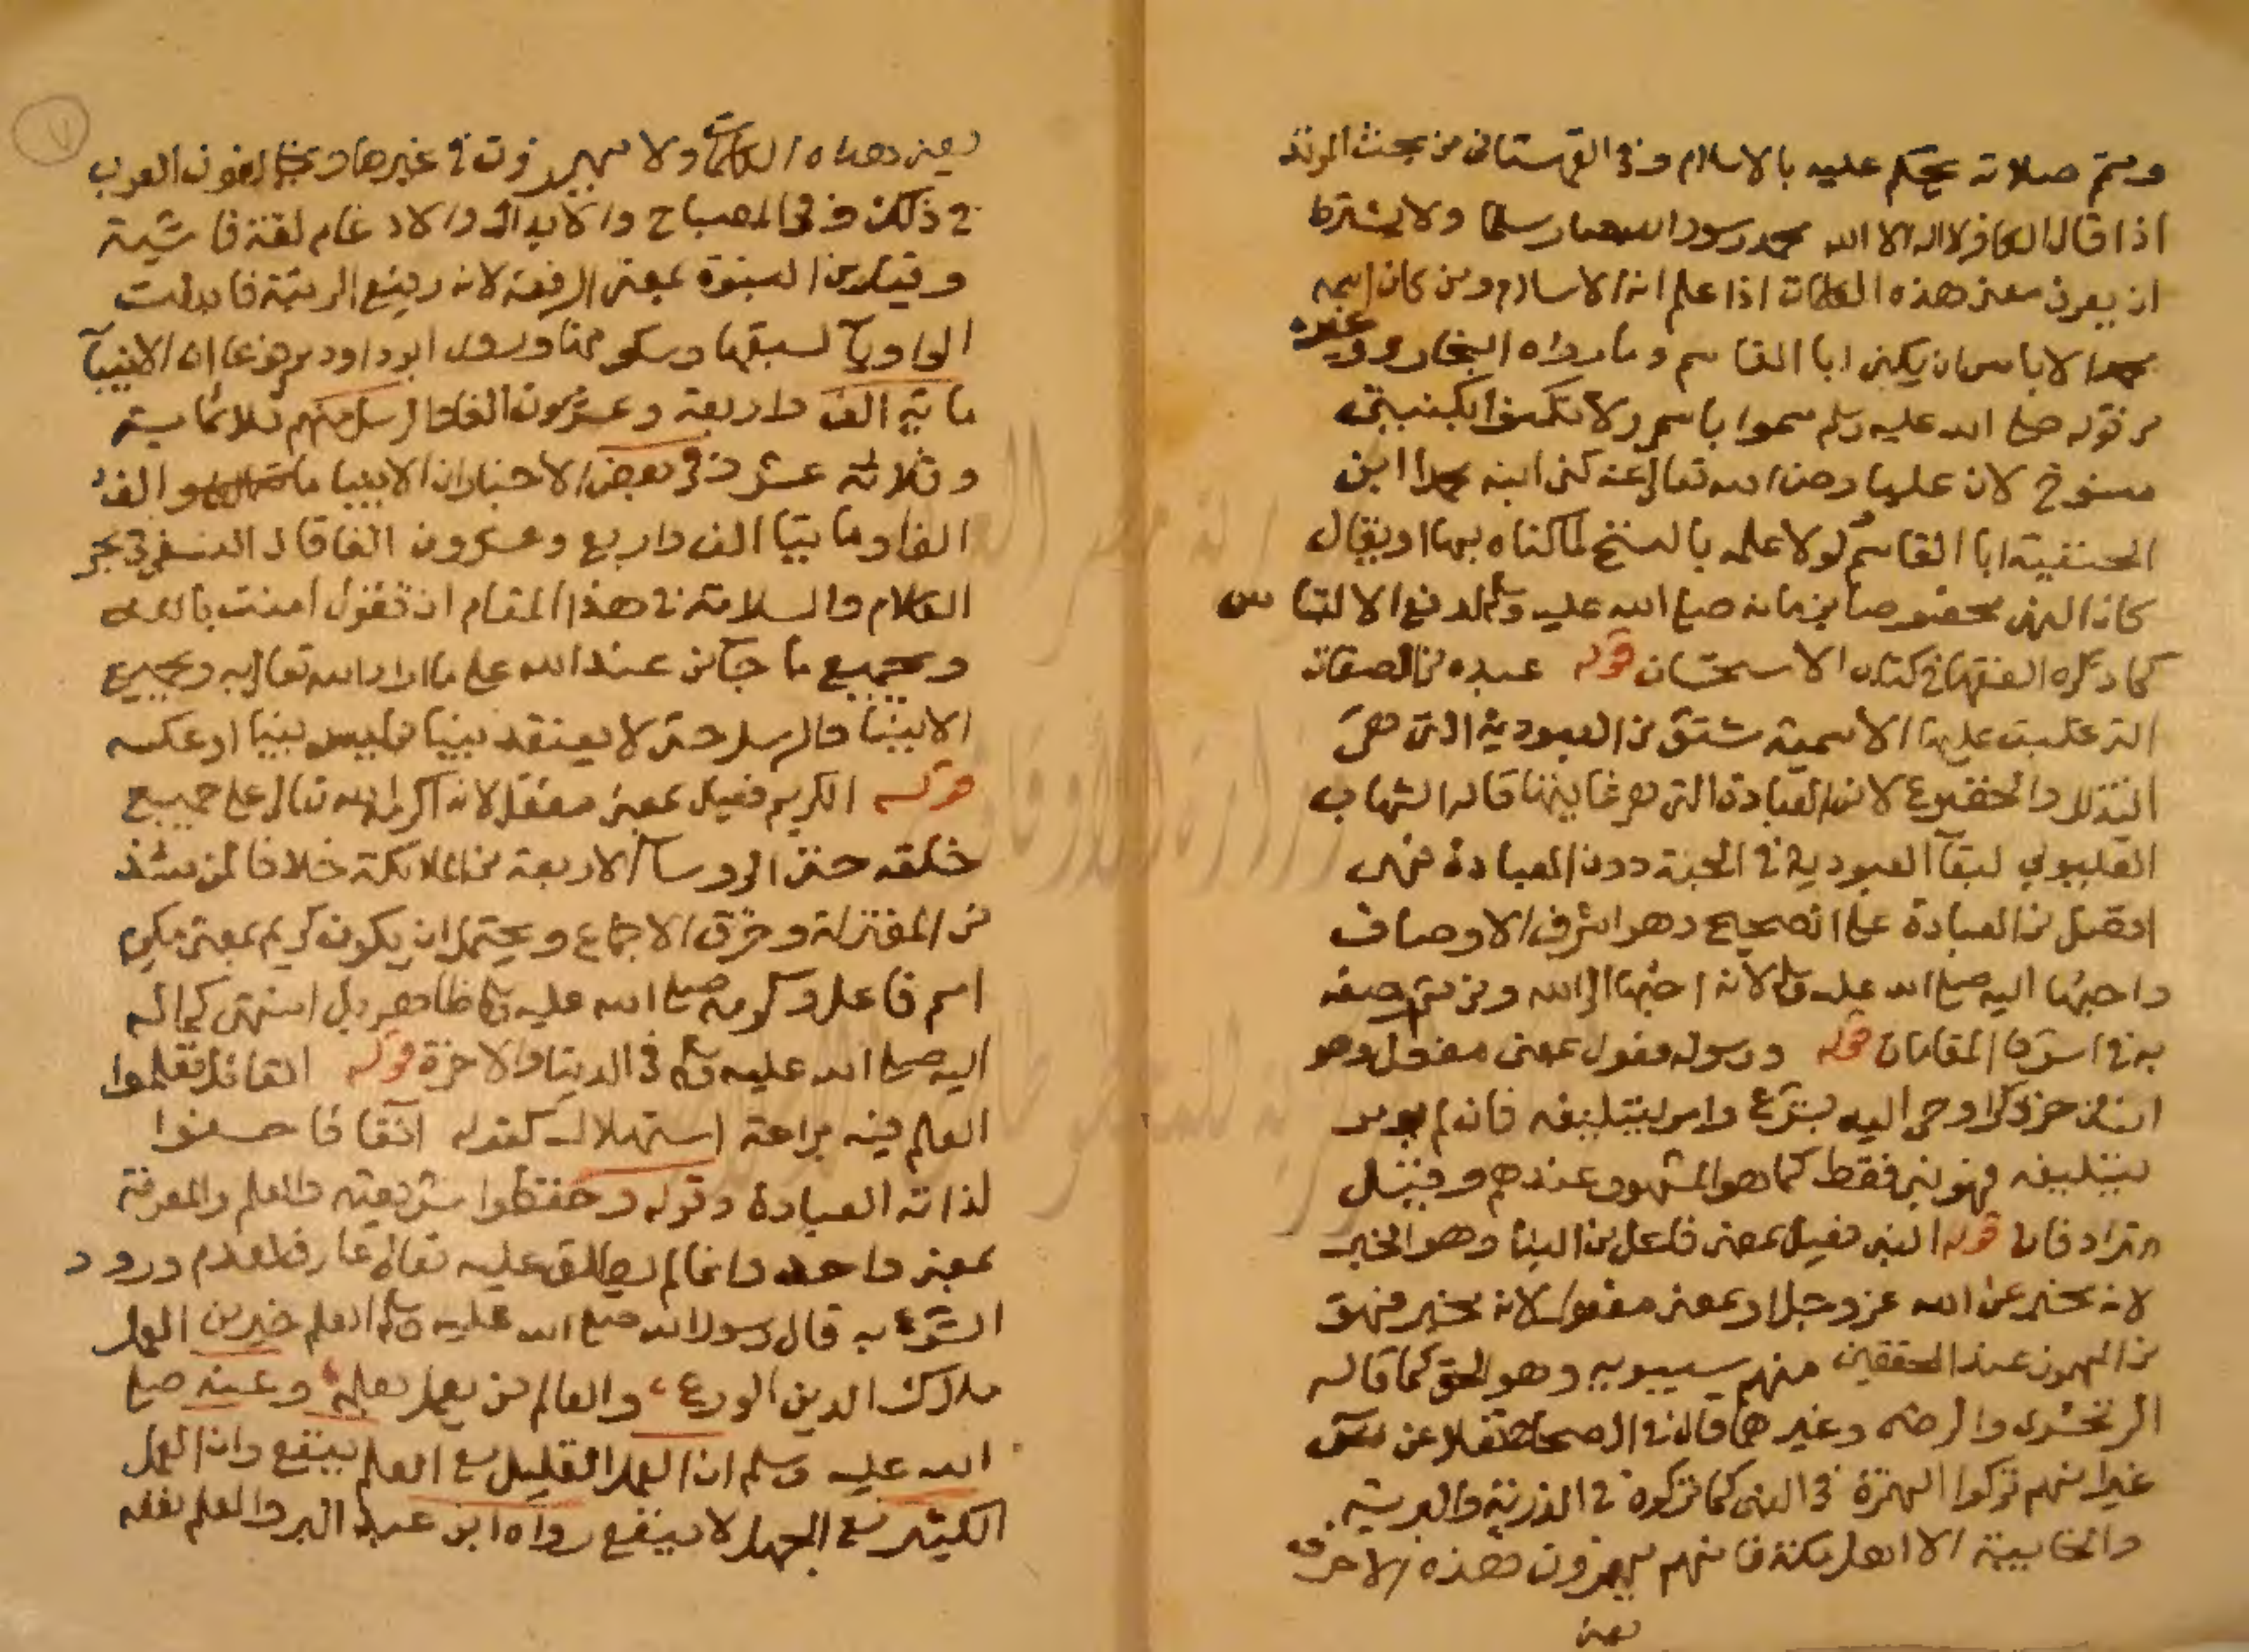 ويتم صلاته يحكم عليه بالاسلام وفي القهستاني من بحث المرتد
اذا قال الكافر لا اله الا الله محمد رسول الله صار مسلما ولا يشترط
ان يعرف معنى هذه الكلمات اذا علم انه الاسلام ومن كان اسمه
محمدا لا باس ان يكنى ابا القاسم وما رواه البخاري وغيره
من قوله صلى الله عليه وسلم سموا باسمي ولا تكنوا بكنيتي
منسوخ لان عليا رضي الله تعالى عنه كنى ابنه محمدا ابن
الحنفية ابا القاسم لولا علمه بالنسخ لما كناه بها او يقال
كان النهي مخصوصا بزمانه صلى الله عليه وسلم لدفع الالتباس
كما ذكره الفقها في كتاب الاستحسان قوله عبده من الصفات
التي غلبت عليها الاسمية مشتق من العبودية التي هي
التذلل والخضوع لا من العبادة التي هي غايتها قاله الشهاب
القليوبي لبقآ العبودية في الجنة دون العبادة فهي
افضل من العبادة على الصحيح وهو اشرف الاوصاف
واحبها اليه صلى الله عليه وسلم لانه احبها الى الله ومن ثم وصفه
به في اشرف المقامات قوله ورسوله فعول بمعنى مفعول وهو
انسان حر ذكر اوحي اليه بشرع وامر بتبليغه فان لم يومر
بتبليغه فهو نبي فقط كما هو المشهور عندهم وقيل
مترادفان قوله النبي فعيل بمعنى فاعل من النبا وهو الخبر
لانه مخبر عن الله عز وجل او بمعنى مفعول لانه مخبر فهو
من المهموز عند المحققين منهم سيبويه وهو الحق كما قاله
الزمخشري والرضي وغيرهما قال في الصحاح نقلا عن يونس
غير انهم تركوا الهمزة في النبي كما تركوه في الذرية والبرية
والخابية الا اهل مكة فانهم يهمزون هذه الاحرف
يعني
يعني هذه الكلمات ولا يهمزون في غيرها ويخالفون العرب
في ذلك وفي المصباح والابدال والادغام لغة فاشية
وقيل من النبوة بمعنى الرفعة لانه رفيع الرتبة فابدلت
الواو يآ لسبقها وسكونها وروى ابو داود مرفوعا ان الانبيآ
ماية الف واربعة وعشرون الفا الرسل منهم ثلاثماية
وثلاثة عشر وفي بعض الاخبار ان الانبيا الف
الفا ومايتا الف واربع وعشرون الفا قال النسفي في بحر
الكلام والسلامة في هذا المقام ان تقول امنت بالله
وبجميع ما جآ من عند الله على ما اراد الله تعالى به وبجميع
الانبيا والرسل حتى لا يعتقد نبيا من ليس نبيا او عكسه
قوله الكريم فعيل بمعنى مفعل لانه اكرمه الله تعالى على جميع
خلقه حتى الروسآ الاربعة من الملائكة خلافا لمن شذ
من المعتزلة وخرق الاجماع ويحتمل ان يكون كريم بمعنى مكرم
اسم فاعل وكرمه صلى الله عليه وسلم ظاهر بل انتهى كماله
اليه صلى الله عليه وسلم في الدنيا والاخرة قوله القائل تعلموا
العلم فيه براعة استهلال كقوله
لذاته العبادة وقوله وحفظوا شريعته والعلم والمعرفة
بمعنى واحد وانما لم يطلق عليه تعالى عارف لعدم ورود
الشرع به قال رسول الله صلى الله عليه وسلم العلم خير من العمل
ملاك الدين الورع والعالم من يعمل بعلمه وعنه صلى
الله عليه وسلم ان العمل القليل مع العلم ينفع وان العمل
الكثير مع الجهل لا ينفع رواه ابن عبد البر والعلم نفعه